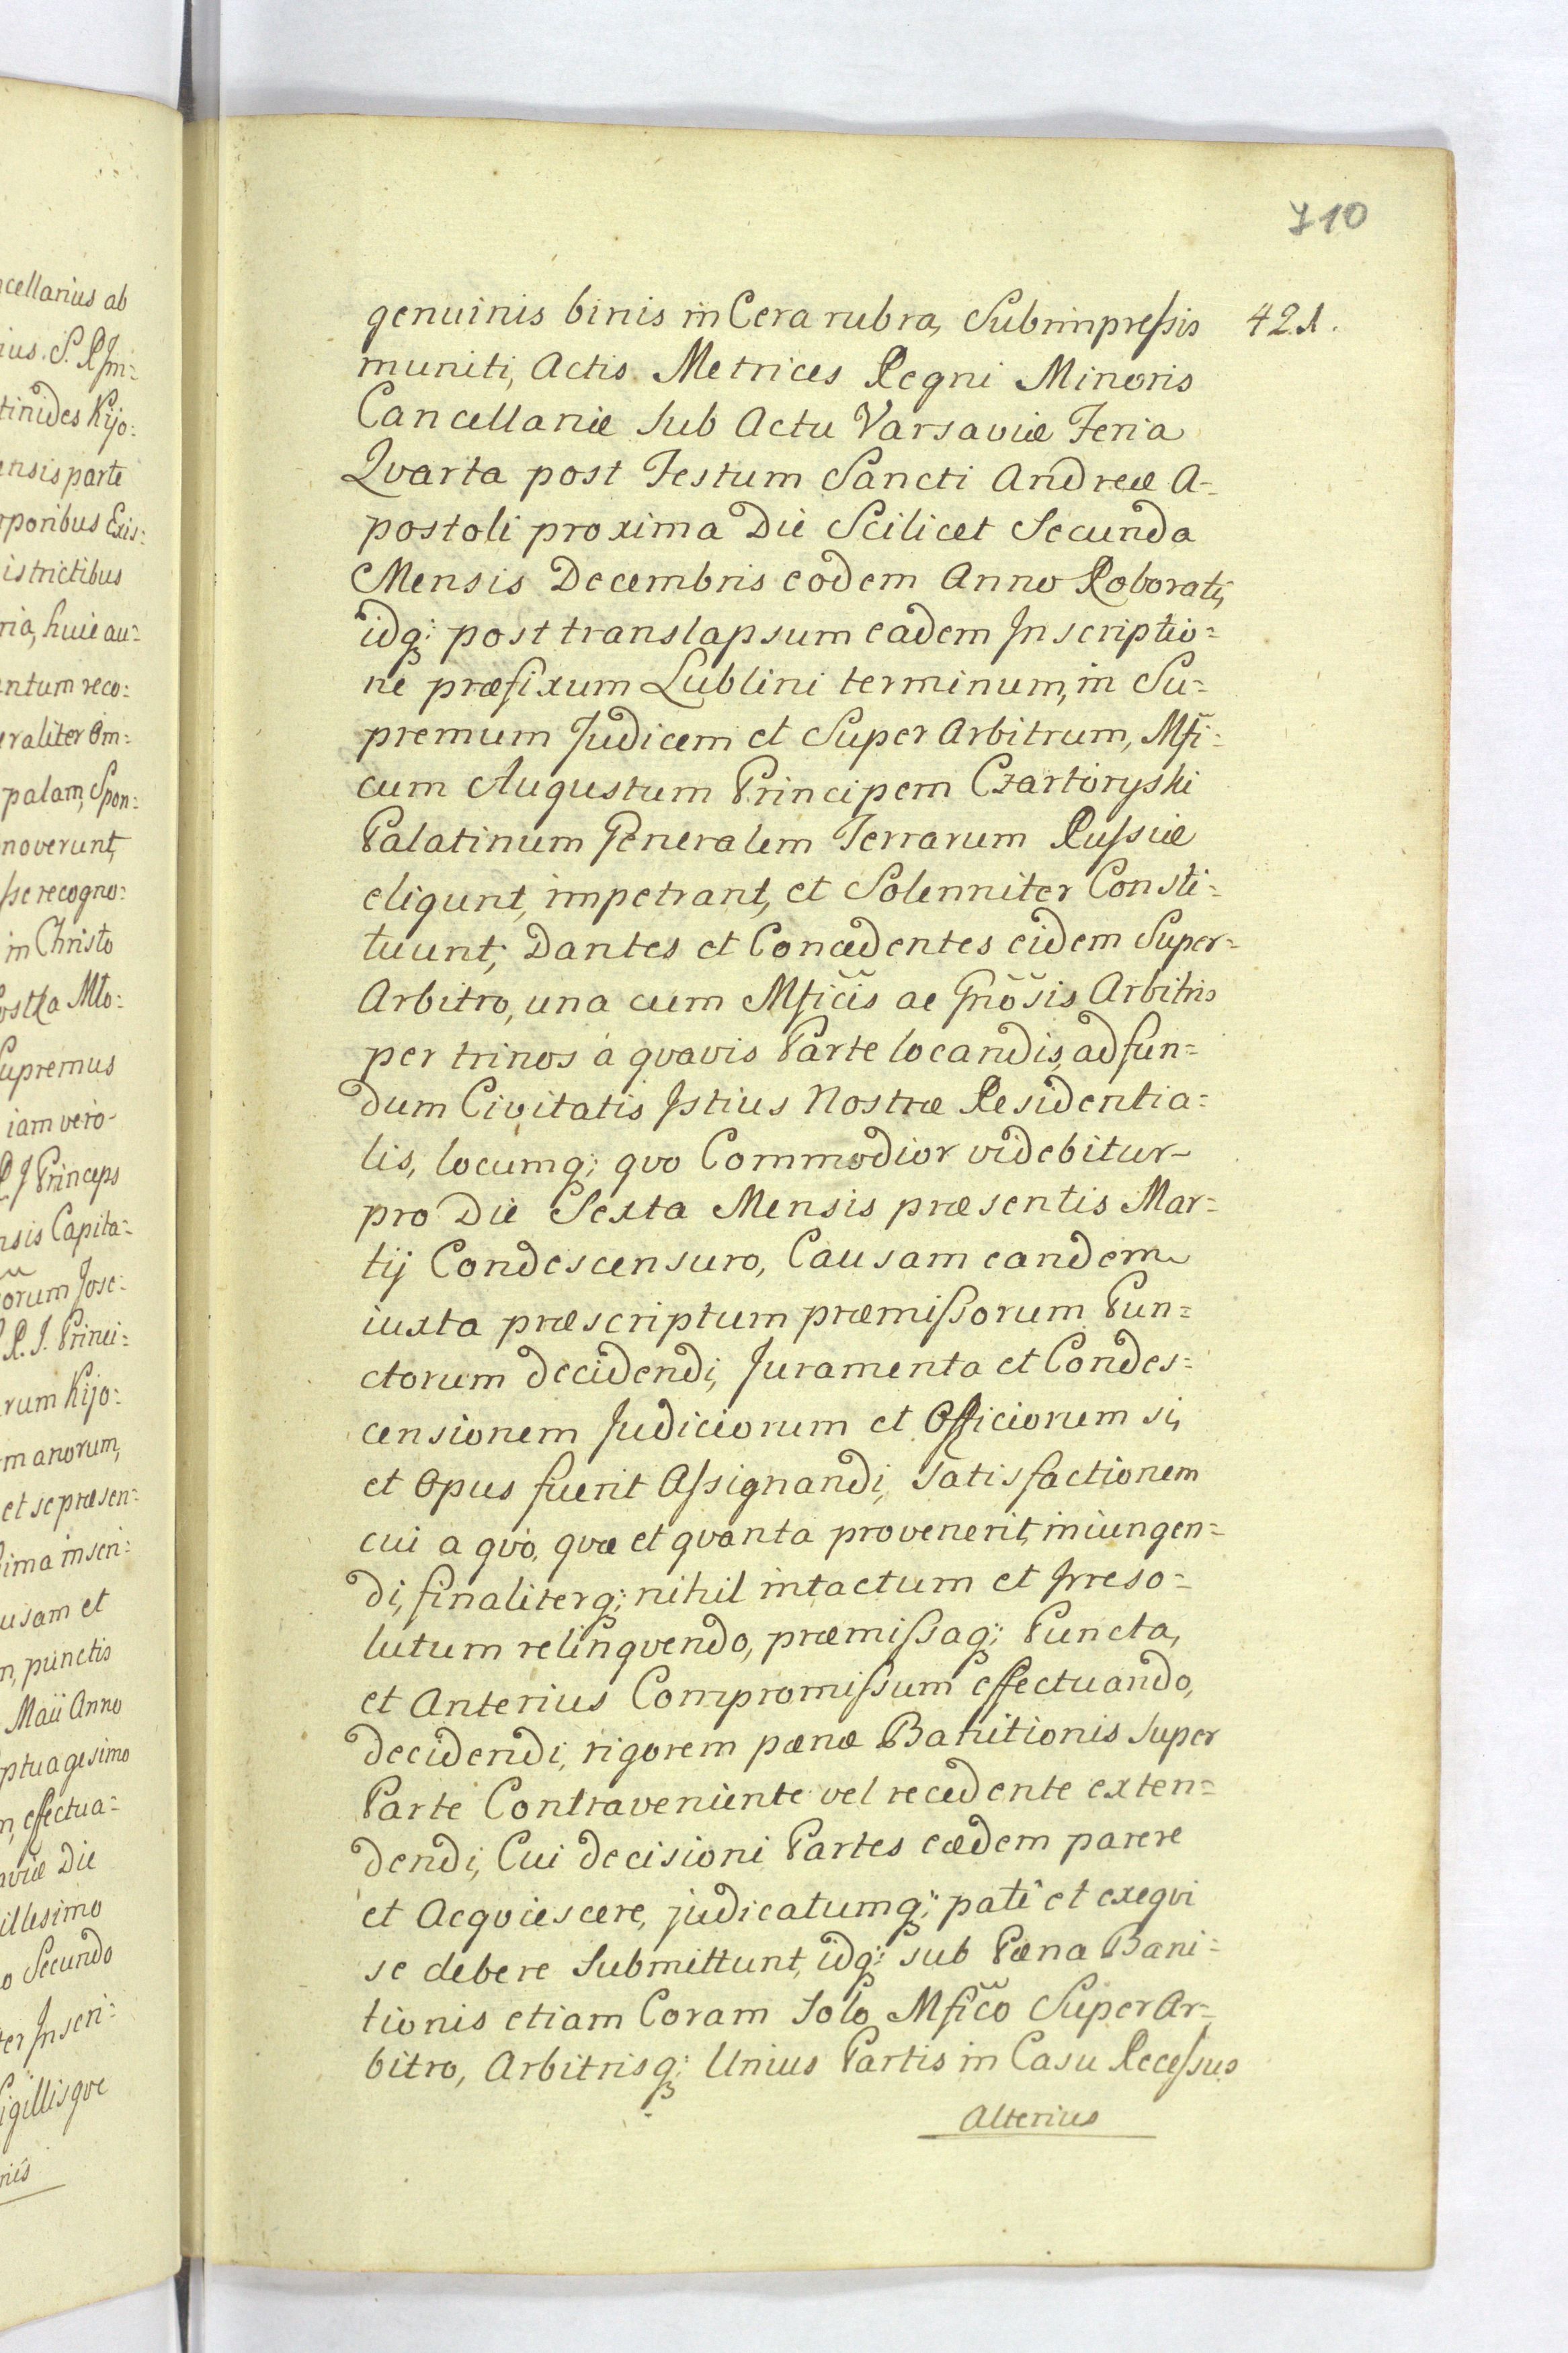 710
cellarius ab
ius. S. R Im=
tinides Kijo:
ensis parte
rporibus Exis:
istrictibus
ria, huic au=
ntum reco:
eraliter Om:
palam, Spon:
noverunt,
sse recogno:
in Christo
ostka Mło:
upremus
iam vero
R J Princeps
nsis Capita=
orum Jose:
R. J. Princi:
rum Kijo:
manorum,
et se præsen:
ima inscri:
usam et
m, punctis
Maii Anno
ptuagesimo
m, effectua=
aviæ Die
illesimo
o Secundo
er Inscri:
igillisqve
nis
genuinis binis in Cera rubra, Subimpressis 421.
muniti, Actis Metrices Regni Minoris
Cancellariæ Sub Actu Varsaviæ Feria
Qvarta post Festum Sancti Andreæ A-
postoli proxima Die Scilicet Secunda
Mensis Decembris eodem Anno Roborati,
idq; post translapsum eadem Inscriptio=
ne præfixum Lublini terminum, in Su=
premum Judicem et Super Arbitrum, Mfi=
cum Augustum Principem Czartoryski
Palatinum Generalem Terrarum Russiæ
eligunt, impetrant, et Solenniter Consti=
tuunt; Dantes et Concedentes eidem Super=
Arbitro, una cum Mficis ac Gnosis Arbitris
per trinos a qvavis Parte locandis, ad fun=
dum Civitatis Istius Nostræ Residentia=
lis, locumq; qvo Commodior videbitur
pro Die Sexta Mensis præsentis Mar=
tij Condescensuro, Causam eandem
iuxta præscriptum præmissorum Pun=
ctorum decidendi, Juramenta et Condes=
censionem Judiciorum et Officiorum si,
et Opus fuerit Assignandi, Satisfactionem
cui a qvo, qvæ et qvanta provenerit, iniungen=
di, finaliterq; nihil intactum et Irreso=
lutum relinqvendo, præmissaq; Puncta,
et Anterius Compromissum effectuando,
decidendi, rigorem pænæ Banitionis Super
Parte Contraveniente vel recedente exten=
dendi, Cui decisioni Partes eædem parere
et Acqviescere, judicatumq; pati et exeqvi
se debere Submittunt, idq; sub Pæna Bani=
tionis etiam Coram Solo Mfico Super Ar=
bitro, Arbitrisq; Unius Partis in Casu Recessus
Alterius